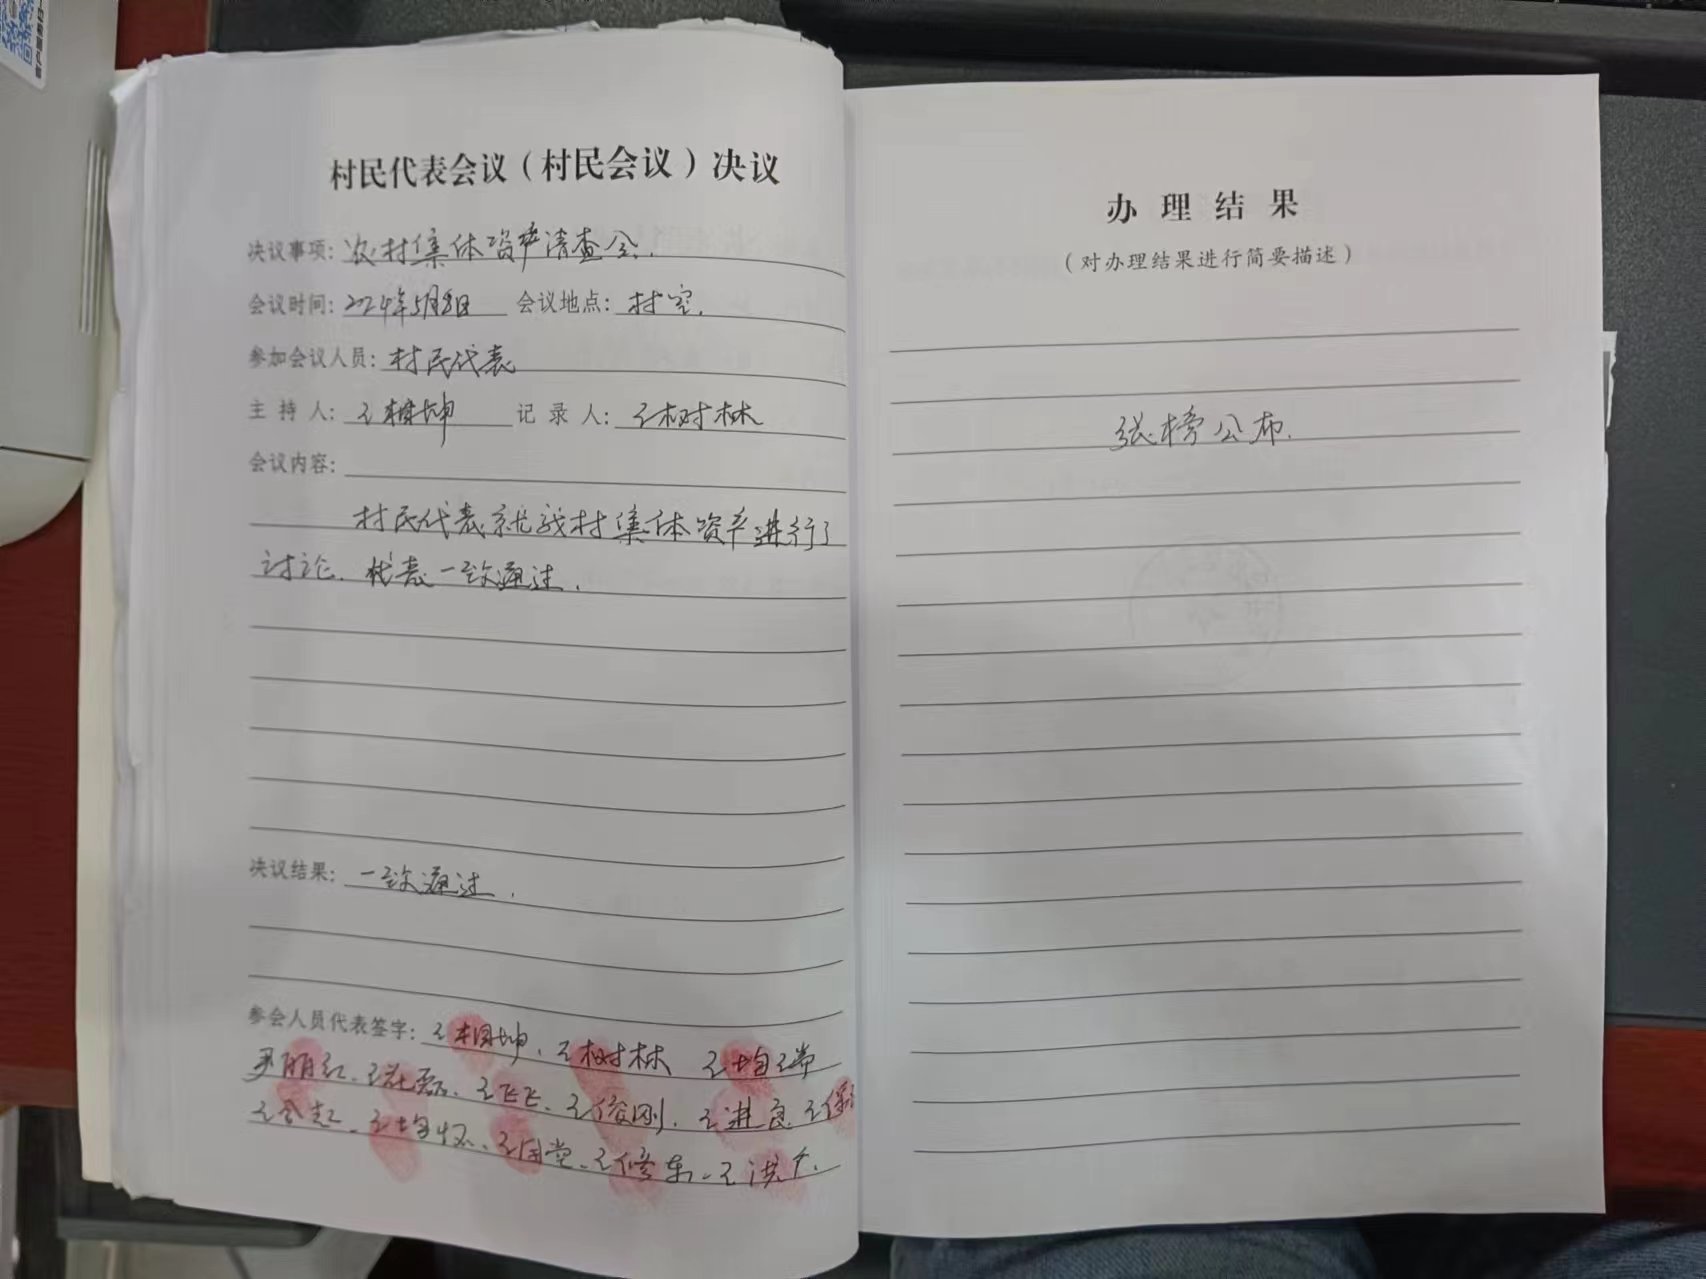 村民代表会议（村民会议）决议
决议事项：农村集体资产清查会.
会议时间：2024年5月8日 会议地点：村室.
参加会议人员：村民代表
主持人：王相坤 记录人：王树林
会议内容：
村民代表就我村集体资产进行了
讨论. 代表一致通过.
决议结果：一致通过.
参会人员代表签字：王相坤、王树林 王均
丽红、王磊、王飞飞、王俊刚、王进良 王保
王 王均怀、王同堂、王修东、王洪
办理结果
（对办理结果进行简要描述）
张榜公布.